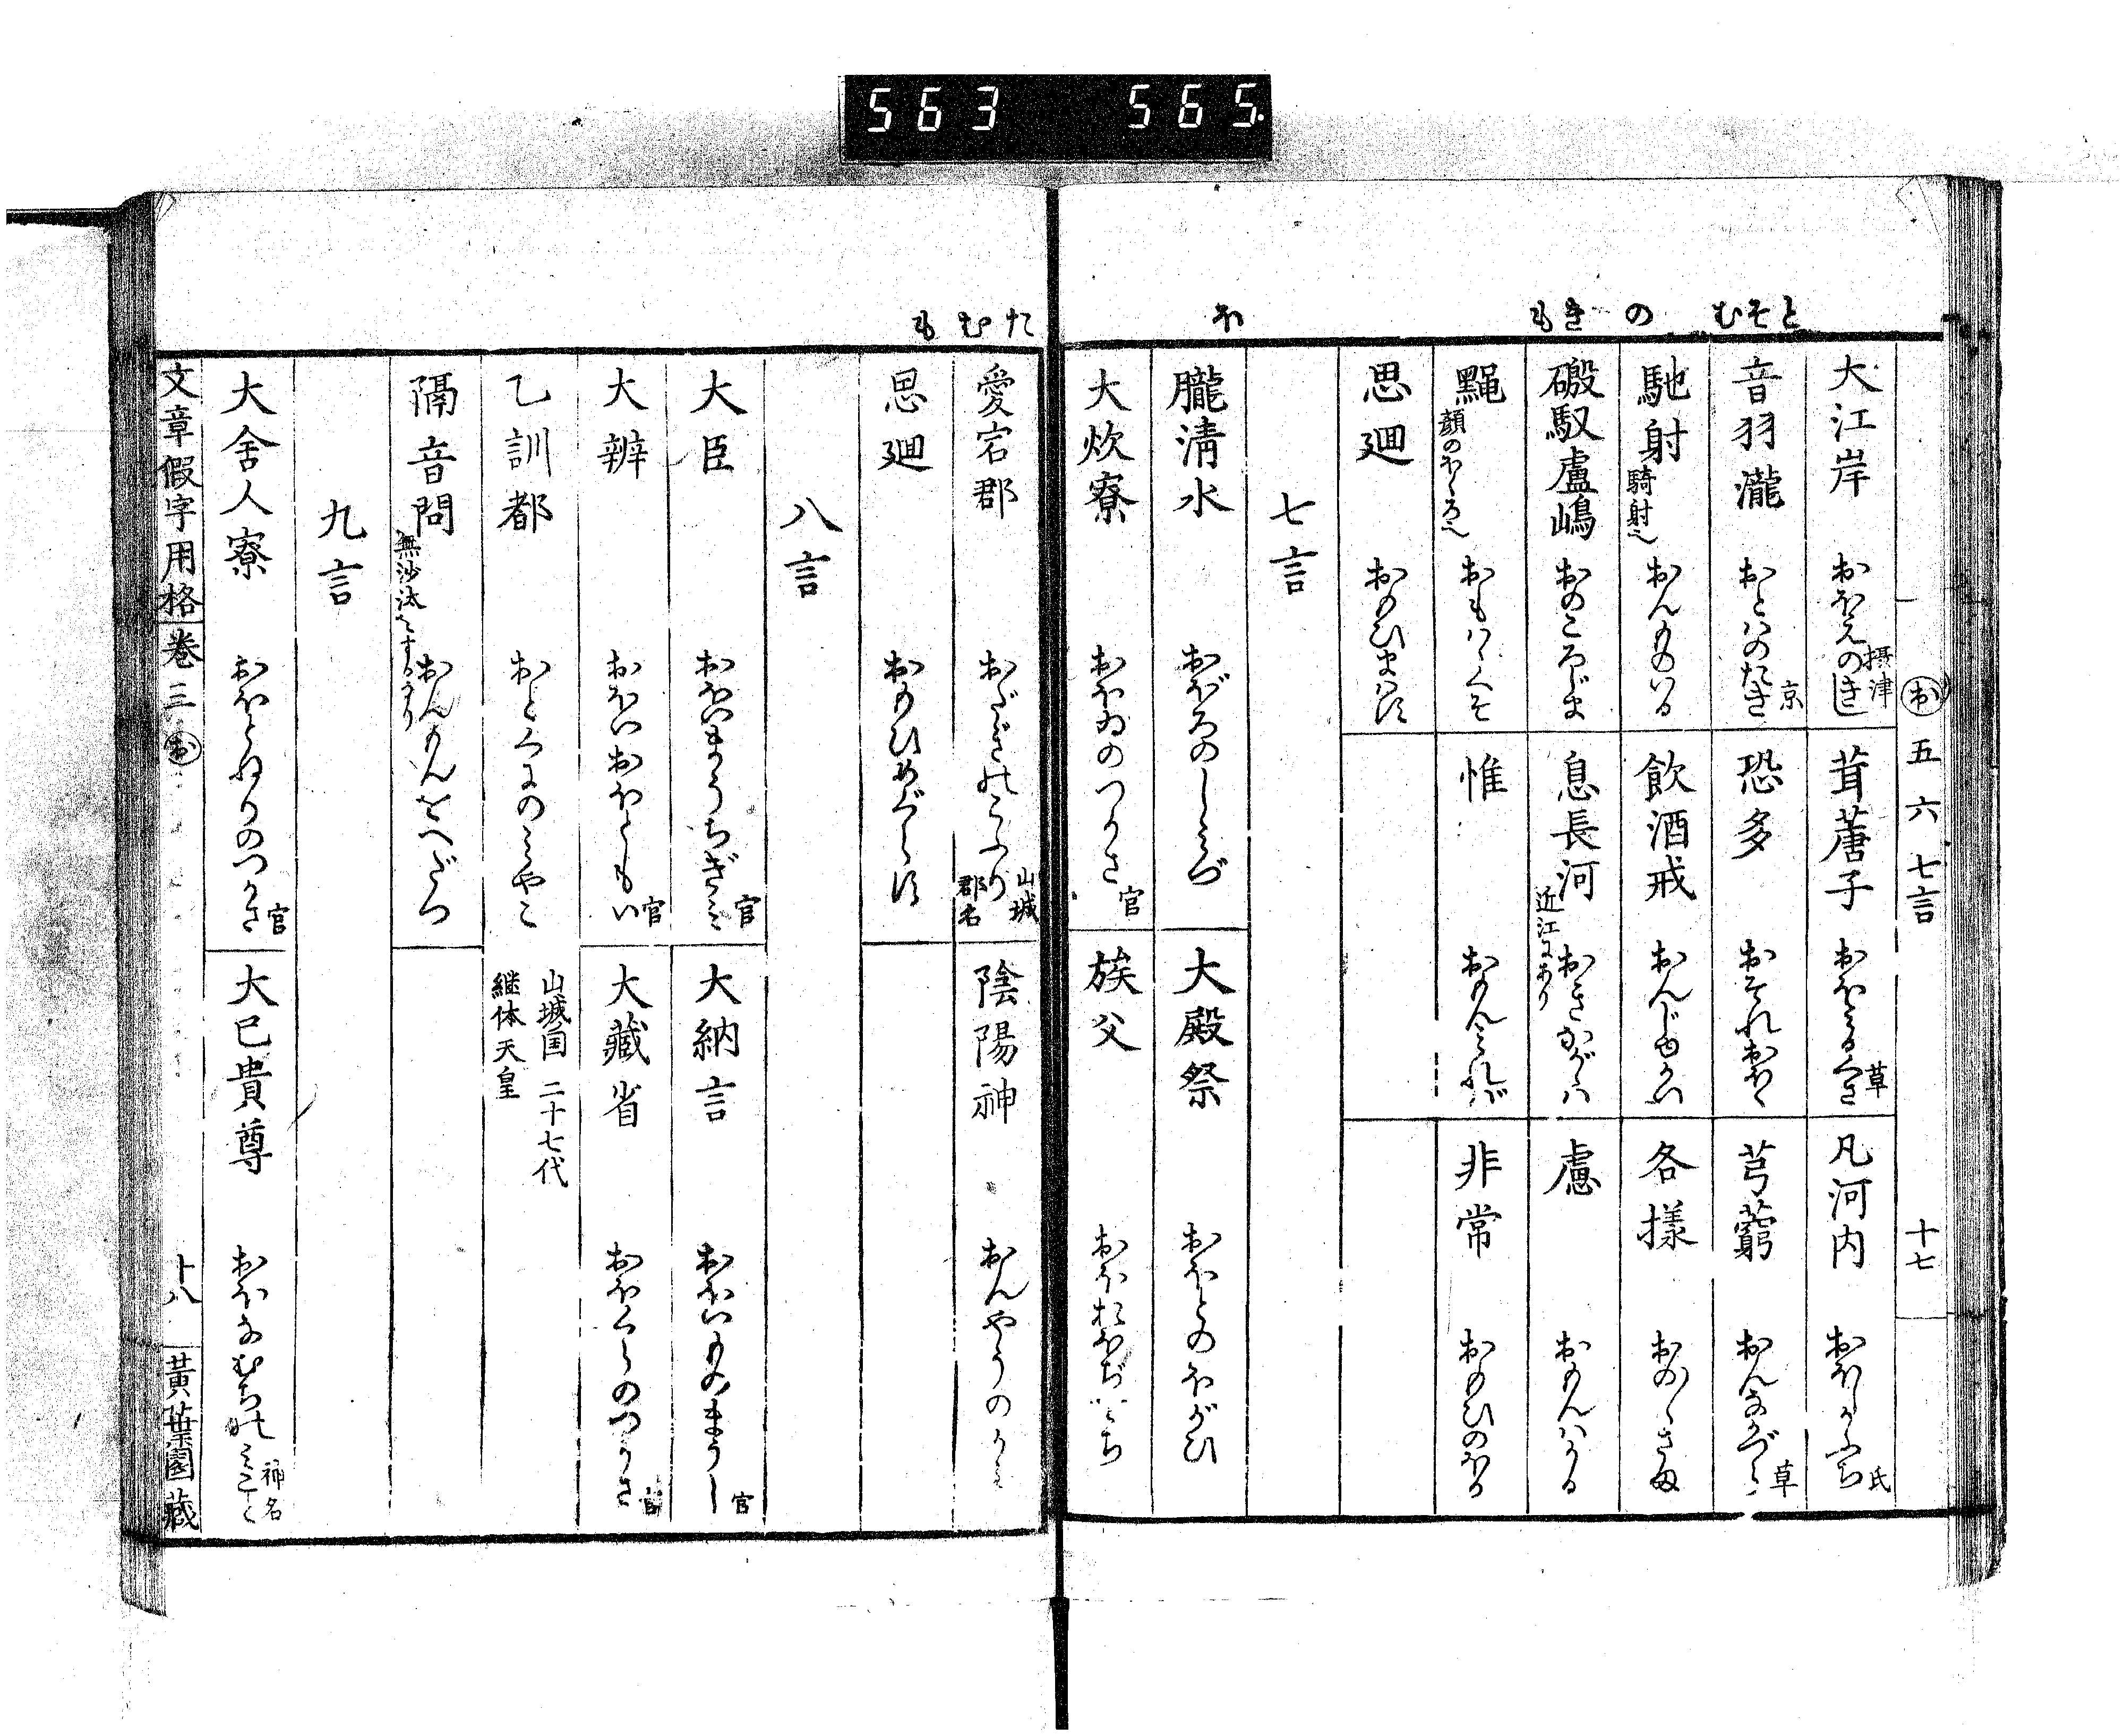 563 565.
とそむ の きも
ほ
お 五六七言 十七
大江岸 おほえのきし 摂津
茸蓎子 おほみるくさ 草
凡河内 おほしかふち 氏
音羽瀧 おとはのたき 京
恐多 おそれおほく
芎藭 おんなかづら 草
馳射 騎射也 おんものいる
飲酒戒 おんじゆかい
各様 おの〳〵さま
磤馭盧嶋 おのころじま
息長河 近江にあり おきながかは
慮 おもんはかる
黶 顔のほくろ也 おもはゝくそ
惟 おもんみれば
非常 おもひのほか
思廻 おもひまはす
七言
朧清水 おぼろのしみづ
大殿祭 おほとのほがひ
大炊寮 おほゐのつかさ 官
族父 おほおほぢ
たむも
愛宕郡 おだぎのこふり 山城郡名
陰陽神 おんやうのかみ
思廻 おもひめぐらす
八言
大臣 おほいまうちぎみ 官
大納言 おほいものまうし 官
大辨 おほいおほともい 官
大藏省 おほくらのつかさ 官
乙訓都 おとくにのみやこ 山城国 二十七代 継体天皇
隔音問 無沙汰をするなり おんもんをへだつ
九言
大舍人寮 おほとねりのつかさ 官
大已貴尊 おほなむちのみこと 神名
文章假字用格 巻三 お 十八 黄葉園藏